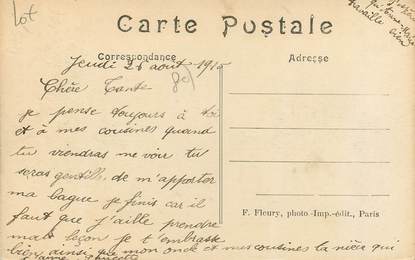 Lot
Carte Postale
travaille bien
Correspondance
Adresse
Jeudi 26 août 1915
Chère Tante
je pense toujours à toi
et à mes cousines quand
tu viendras me voir tu
seras gentille de m'apporter
ma bague je finis car il
faut que j'aille prendre
ma leçon je t'embrasse
bien ainsi que mon oncle et mes cousines ta nièce qui
t'aime
F. Fleury, photo-Imp.-édit., Paris